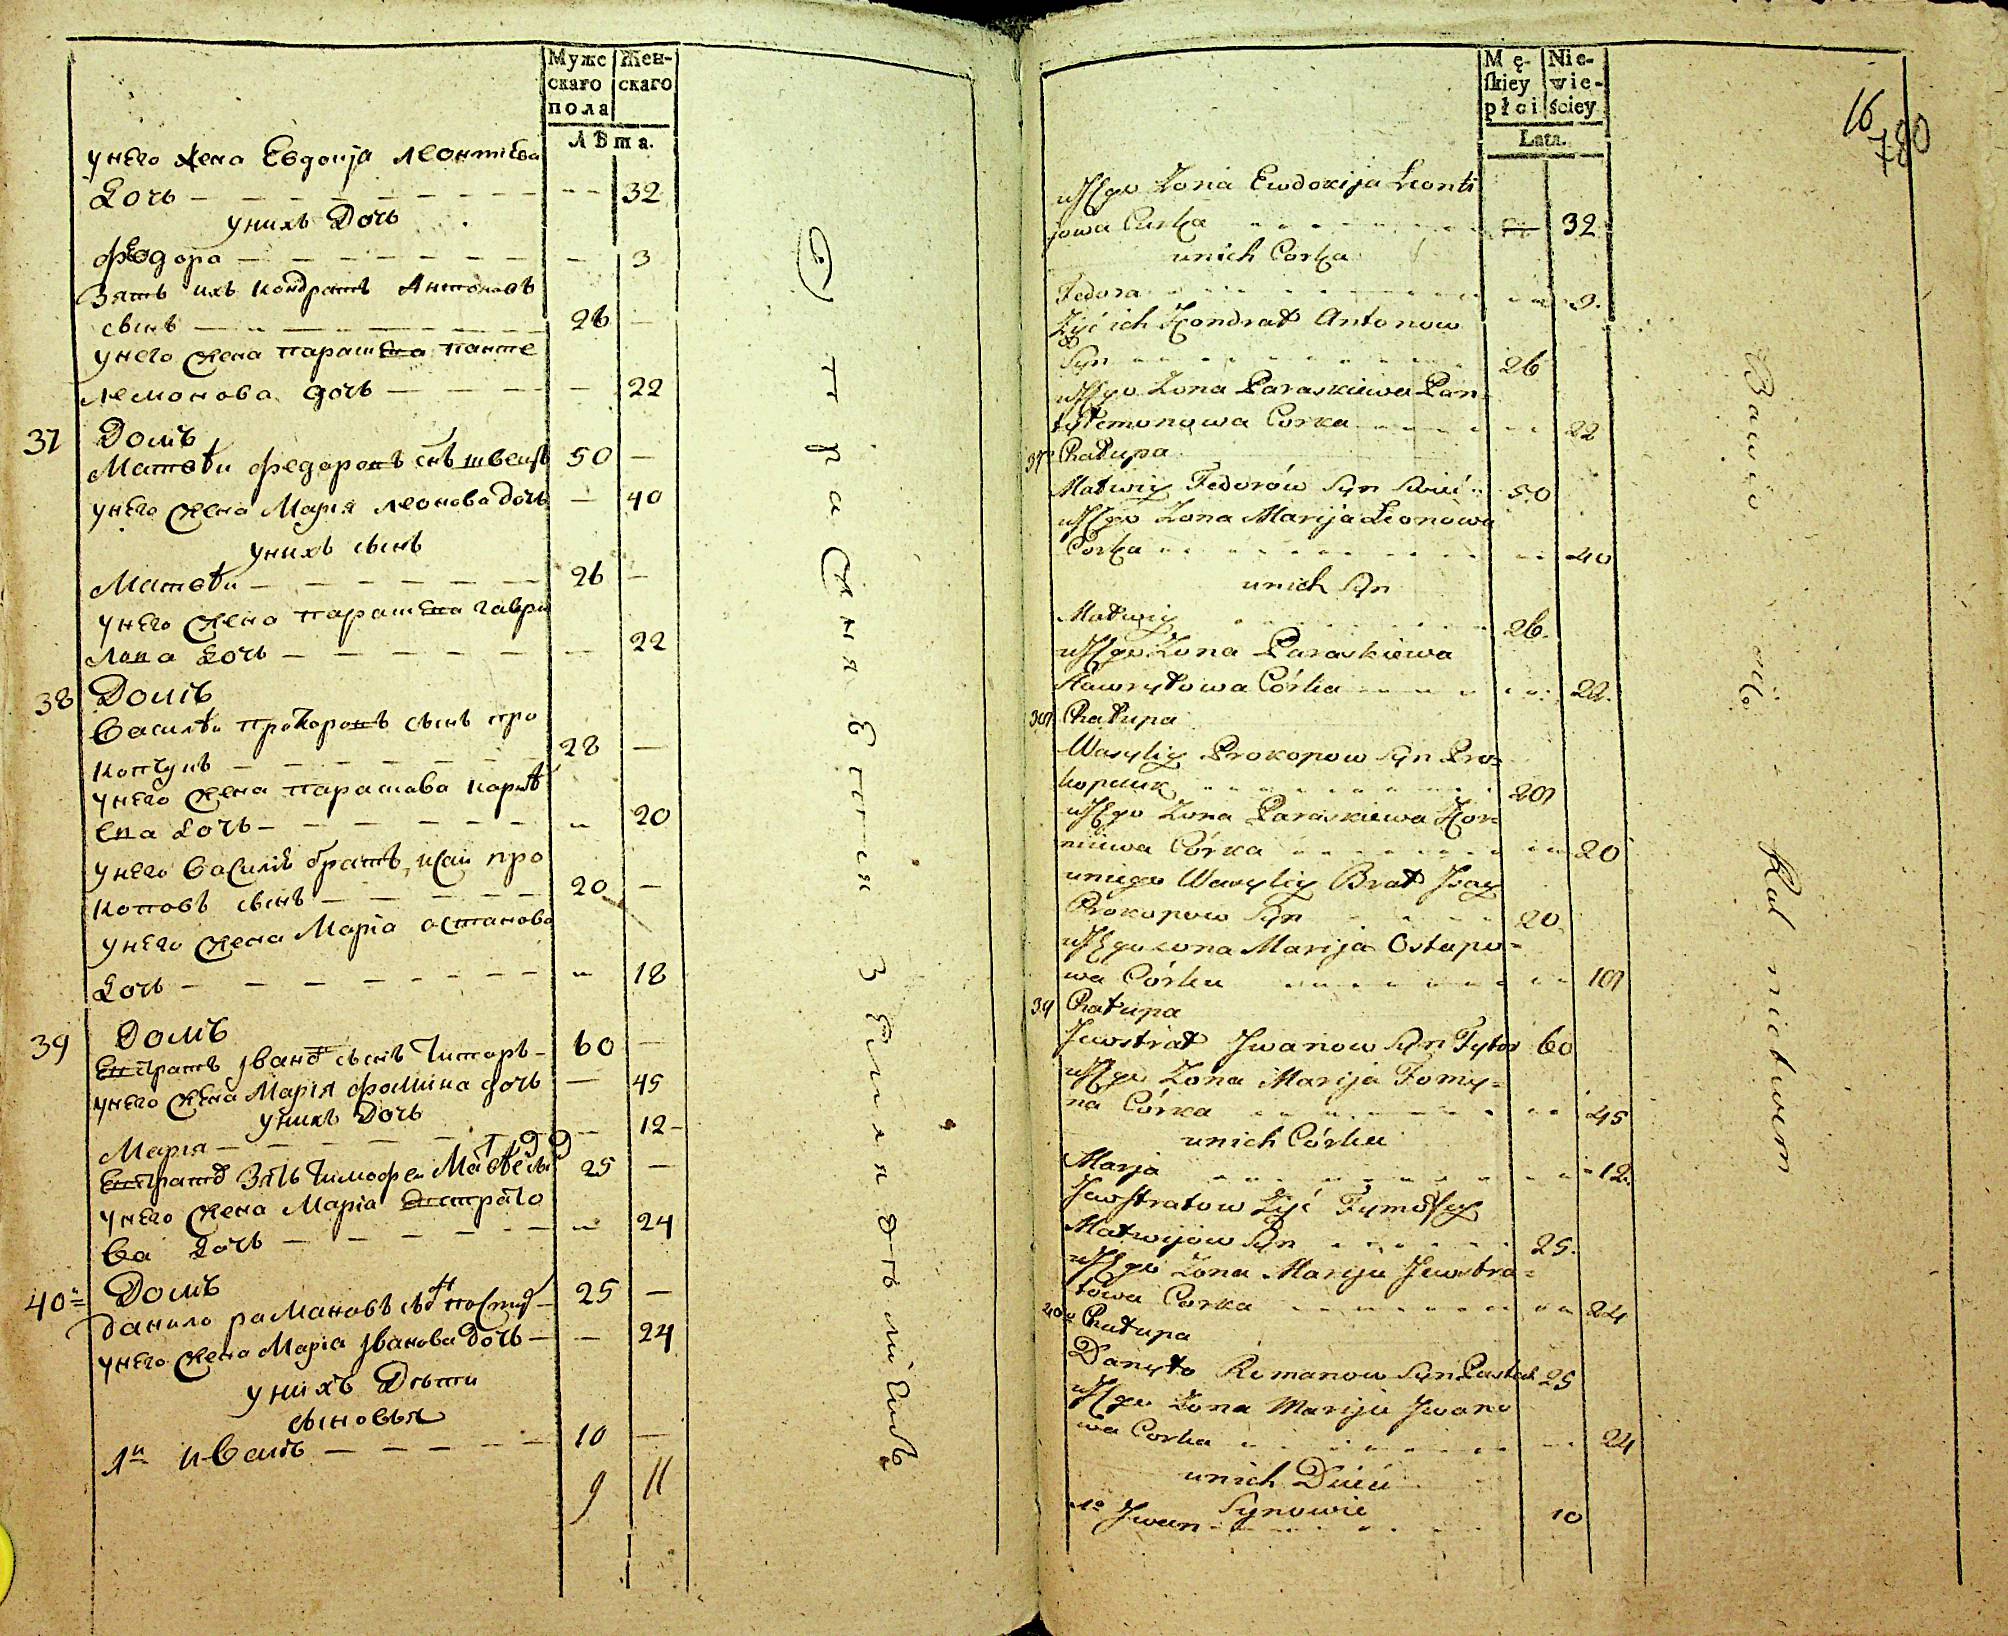 Муже
скаго
пола
Жен-
скаго
Лѣта.
унего жена Евдокіja леонтіева
Дочь — — 32
унихъ Дочь
федора — — 3
Зять ихъ кондратъ Антоновъ
сынъ — 26 —
унего жена параскева панте
лемонова дочь — — 22
37 Домъ
Матвѣи федоровъ снъ швецъ 50 —
унего жена Марія леонова дочь — 40
унихъ сынъ
Матвѣи — 26 —
унего жена параскева гаври
лова Дочь — — 22
38 Домъ
василѣи прокоповъ сынъ про
копчукъ — 28 —
унего жена параскева корнѣ
ева дочь — „ 20
унего василіѣ братъ исаи про
коповъ сынъ — 20 —
унего жена Маріа остапова
Дочь — „ 18
39 Домъ
Евстратъ јвановъ сынъ Титоръ — 60 —
унего жена Марія фомина дочь — 45
унихъ Дочь
Марія — — 12 —
Евстратовъ зять тимофеи 25 —
унего жена Маріа Евстрато
ва Дочь — „ 24
40 Домъ
данило романовъ снъ 25 —
унего жена Маріа јванова дочь — — 24
унихъ Дѣти
сыновья
1й иванъ — 10 —
9 11
Страсння Евгенія
Mę-
ſkiey
płci
Nie-
wie-
ściey
Lata.
16
780
uJego Zona Ewdokija Leonti
jowa Curka 32
unich Corka
Fedora 3.
Zięć ich Kondrat Antonow
Syn 26
uJego Zona Paraskiewa Pan-
tylemonowa Corka 22
37 Chałupa
Matwiy Fedorów Syn 50
uJego Zona Marija Leonowa
Corka 40
unich Syn
Matwiy 26.
uJego Zona Paraskiewa
Hawryłowa Córka 22.
38 Chałupa
Wasyliy Prokopow Syn Pro-
kopczuk 28
uJego Zona Paraskiewa Kor-
niiwa Córka 20
uniego Wasyliy Brat Jsay
Prokopow Syn 20.
uJego Zona Marija Ostapo-
wa Córka 18
39 Chałupa
Jewstrat Jwanow Syn Tytor 60
uJego Zona Marija Fomy-
na Córka 45
unich Córka
Marja 12.
Jewstratow Zięć Tymofey
Matwijow Syn 25.
uJego Zona Marija Jewstra-
towa Corka 24
40 Chałupa
Danyło Romanow Syn 25
uJego Zona Marija Jwano
wa Corka 24
unich Dzieci
Synowie
1o Jwan 10